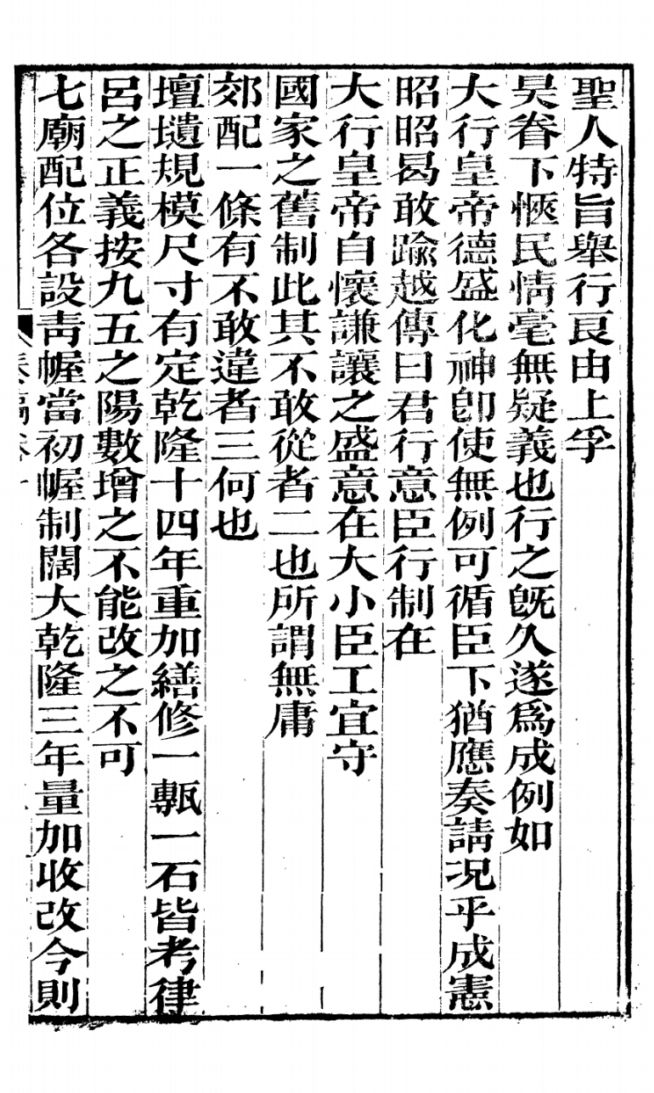 聖人特旨舉行良由上孚
昊眷下愜民情毫無疑義也行之旣久遂爲成例如
大行皇帝德盛化神卽使無例可循臣下猶應奏請况乎成憲
昭昭曷敢踰越傳曰君行意臣行制在
大行皇帝自懷謙讓之盛意在大小臣工宜守
國家之舊制此其不敢從者二也所謂無庸
郊配一條有不敢違者三何也
壇壝規模尺寸有定乾隆十四年重加繕修一甎一石皆考律
呂之正義按九五之陽數增之不能改之不可
七廟配位各設靑幄當初幄制闊大乾隆三年量加收改今則
奏稿卷一